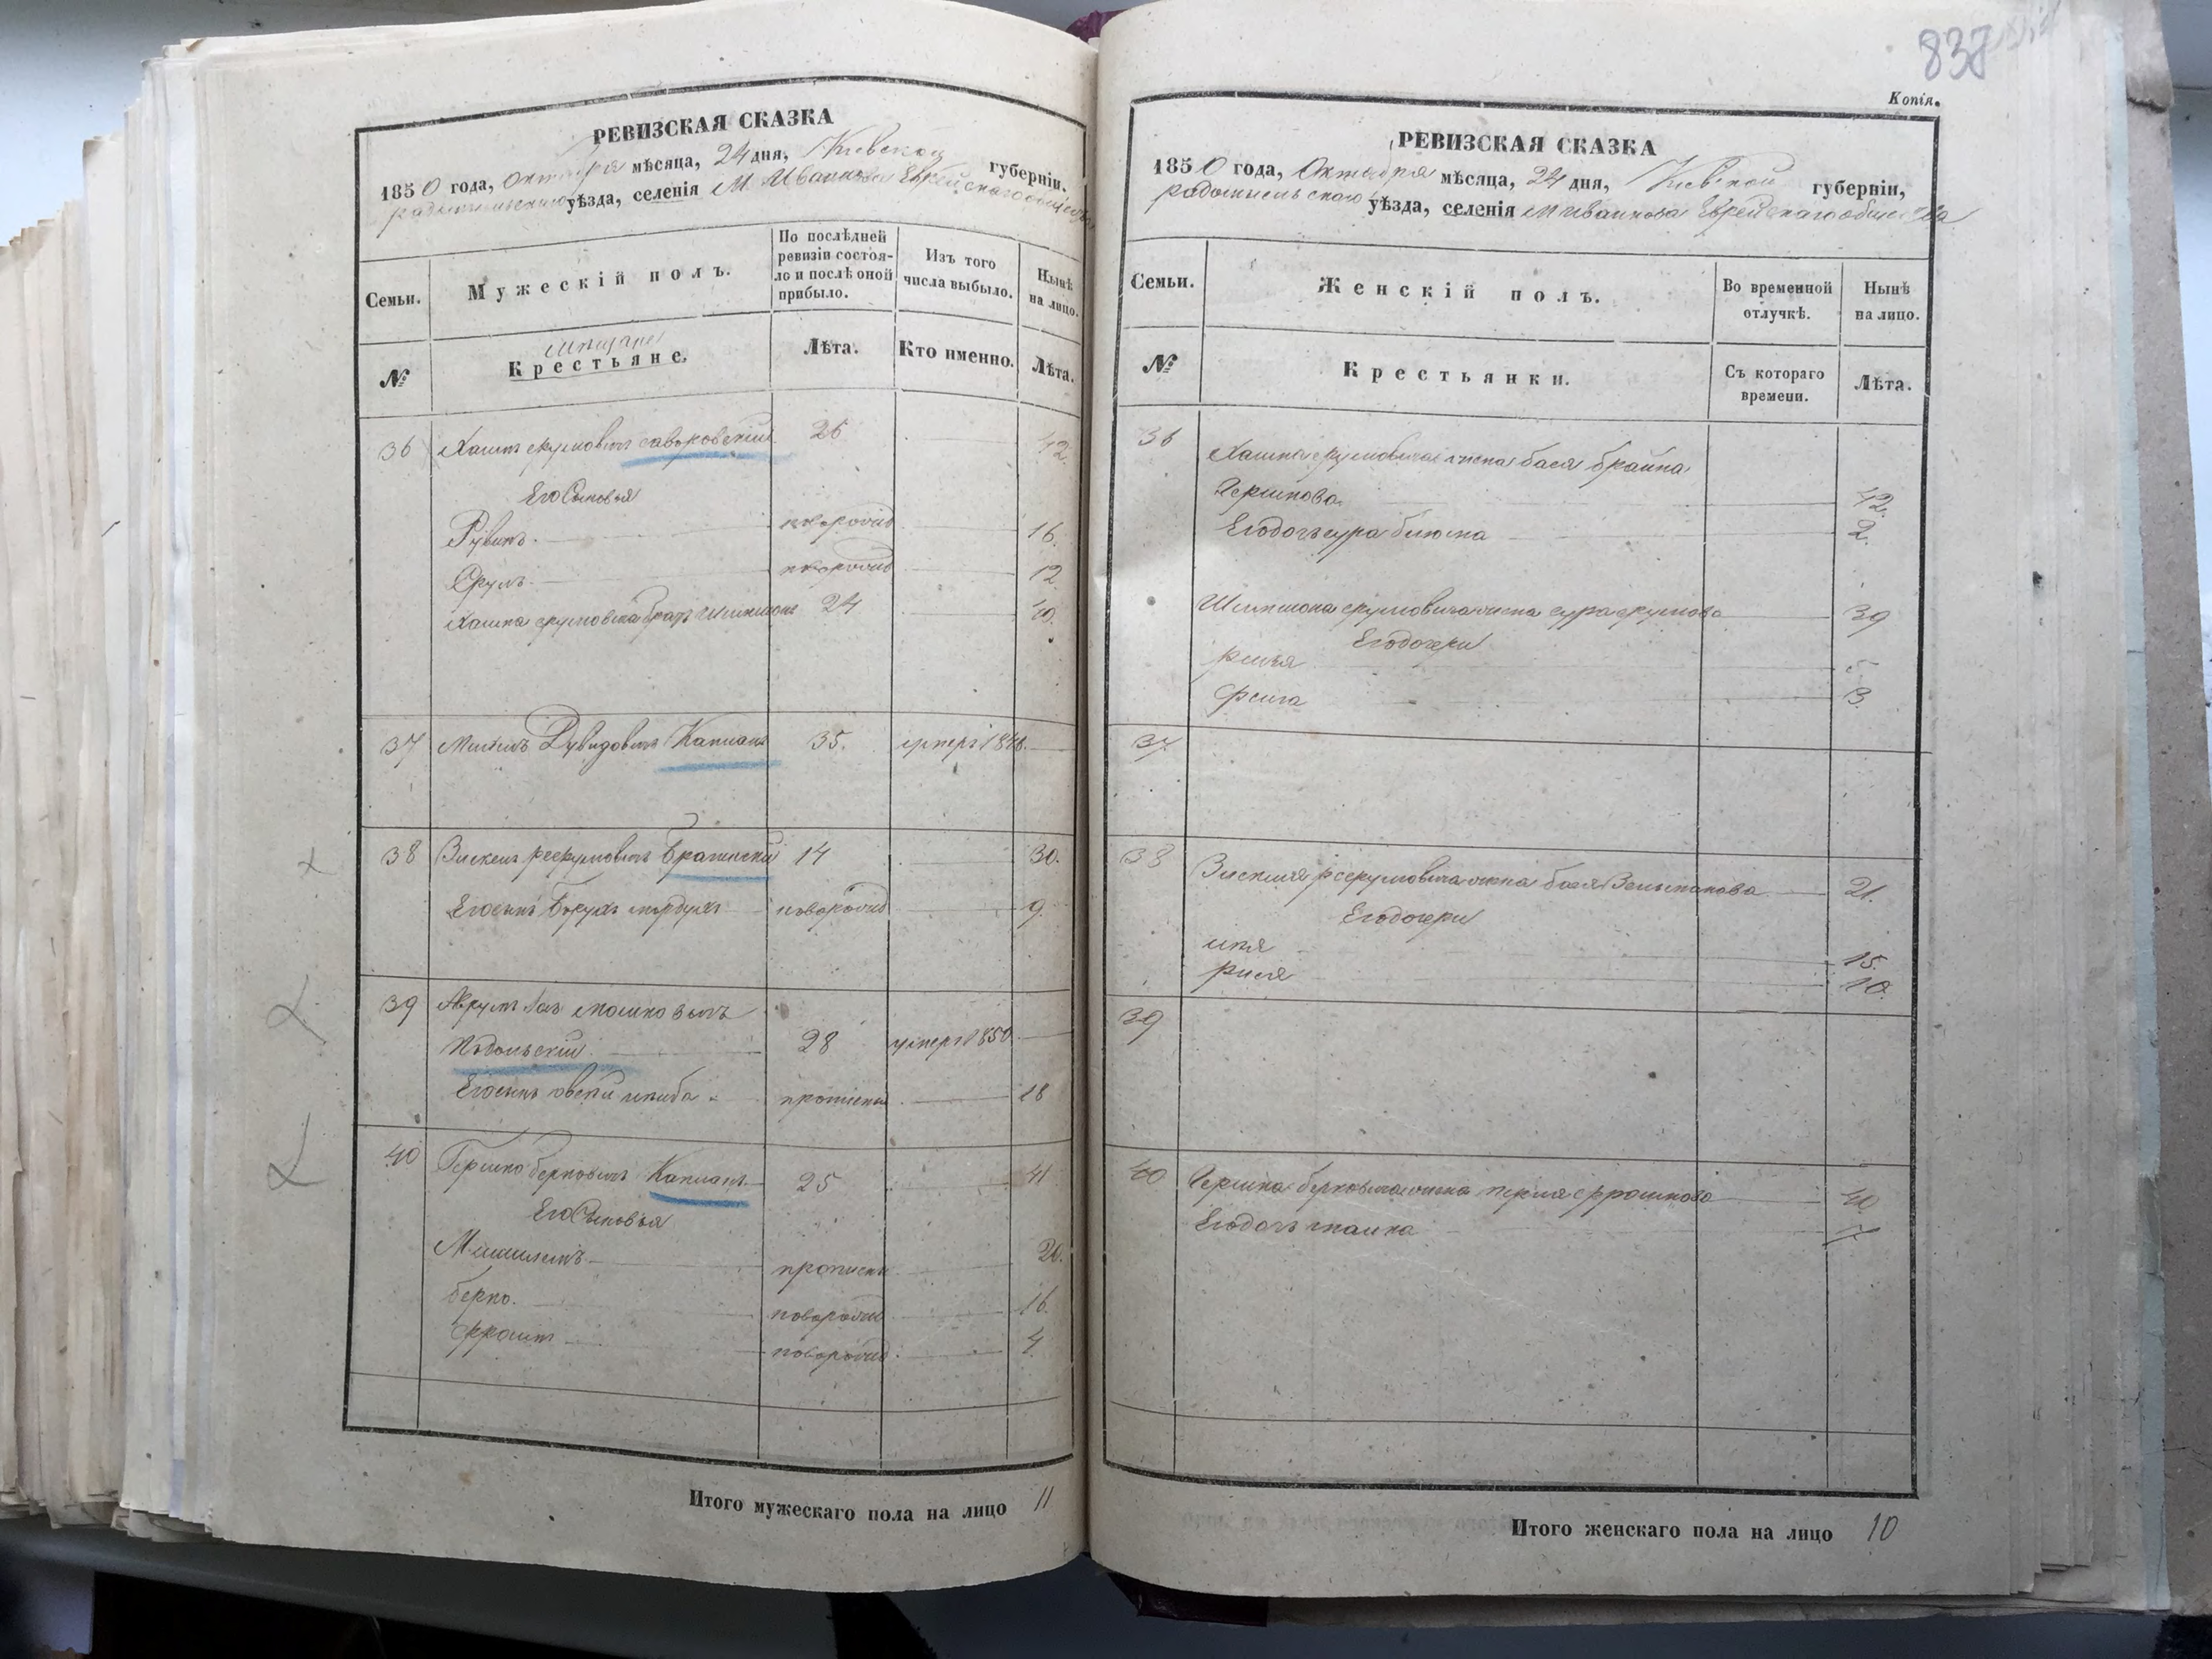 РЕВИЗСКАЯ СКАЗКА
1850 года, октября мѣсяца, 24 дня, Киевской губерніи,
радомысльскаго уѣзда, селенія М. Иванкова Еврейскаго общества
Семьи.
Мужескій полъ.
По послѣдней ревизіи состояло и послѣ оной прибыло.
Изъ того числа выбыло.
Нынѣ на лицо.
№
мещане
Крестьяне.
Лѣта.
Кто именно.
Лѣта.
36 Хаимъ срулювичъ 26 42
Его Сыновья
Рувинъ. новорожд 16.
Срулъ новорожд 12
Хаима срулювича братъ Шимшонъ 24 40.
37 Рувидовичъ Капланъ 35. умеръ 1848.
38 14 30.
Его сынъ Борухъ мордухъ новорожд 9.
39 Мошковичъ
Подольскій 28 умеръ 1850
Его сынъ овсей акиба прописной 18
40 Гершко берковичъ Капланъ 25 41
Его Сыновья
пропис 20.
берко. новорожд 16.
Фроимъ новорожд 4.
Итого мужескаго пола на лицо 11
838
Копія.
РЕВИЗСКАЯ СКАЗКА
1850 года, Октября мѣсяца, 24 дня, Киевской губерніи,
радомысльскаго уѣзда, селенія М Иванкова Еврейскаго общества
Семьи.
Женскій полъ.
Во временной отлучкѣ.
Нынѣ на лицо.
№
Крестьянки.
Съ котораго времени.
Лѣта.
36 Хаима срулювича жена бася брайна
Гершкова 42.
Его дочь сура блюма 2.
Шимшона срулювича жена сура срулева 39
Его дочери
рейзя 5
фейга 3.
37
38 жена бася 21.
Его дочери
15.
рися 10.
39
40 Гершка берковича жена перля фроимова 40
Его дочь 17
Итого женскаго пола на лицо 10